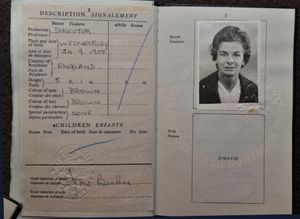 DESCRIPTION SIGNALEMENT
Bearer Titulaire
Wife Femme
Profession
Profession
DIRECTOR
Place and date
of birth
WEDNESBURY
Lieu et date
de naissance
Country of
Residence
ENGLAND
Pays de
Résidence
Height
Taille
Colour of eyes
Couleur des yeux
BROWN
Colour of hair
Couleur des cheveux
BROWN
Special peculiarities
Signes particuliers
NONE
CHILDREN ENFANTS
Name Nom
Date of birth Date de naissance
Sex Sexe
Usual signature of bearer
Signature du titulaire
Usual signature of wife
Signature de sa femme
3
Bearer
Titulaire
Wife
Femme
(PHOTO)